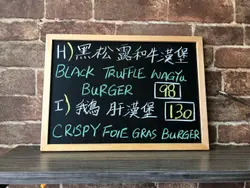 H) 黑松露和牛漢堡
BLACK TRUFFLE WAGYU
BURGER 98
I) 鵝肝漢堡 130
CRISPY FOIE GRAS BURGER